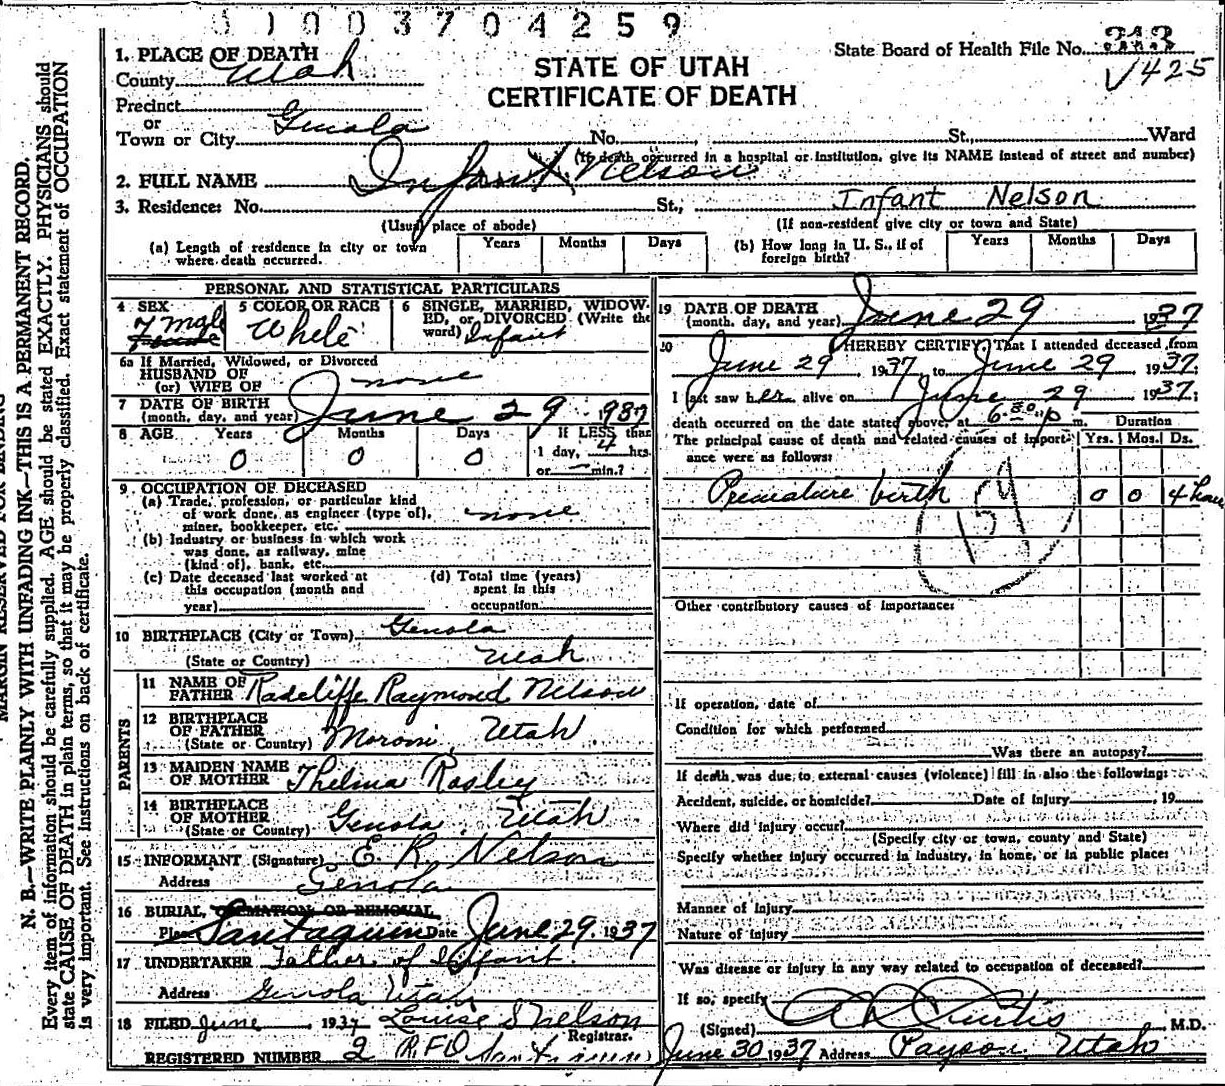 1003704259
MARGIN RESERVED FOR BINDING
N. B.—WRITE PLAINLY WITH UNFADING INK—THIS IS A PERMANENT RECORD.
Every item of information should be carefully supplied. AGE should be stated EXACTLY. PHYSICIANS should
state CAUSE OF DEATH in plain terms, so that it may be properly classified. Exact statement of OCCUPATION
is very important. See instructions on back of certificate.
State Board of Health File No. 
√425
STATE OF UTAH
CERTIFICATE OF DEATH
1. PLACE OF DEATH
County Utah
Precinct
or
Town or City Genola No. St., Ward
(If death occurred in a hospital or institution, give its NAME instead of street and number)
2. FULL NAME Infant Nelson
3. Residence: No. St., Infant Nelson
(Usual place of abode) (If non-resident give city or town and State)
(a) Length of residence in city or town where death occurred. Years Months Days
(b) How long in U. S., if of foreign birth? Years Months Days
PERSONAL AND STATISTICAL PARTICULARS
4 SEX
5 COLOR OR RACE White
6 SINGLE, MARRIED, WIDOWED, or DIVORCED (Write the word) Infant
6a If Married, Widowed, or Divorced
HUSBAND OF
(or) WIFE OF none
7 DATE OF BIRTH
(month, day, and year) June 29 1937
8 AGE Years Months Days If LESS than
0 0 0 1 day, 4 hrs.
or — min.?
9 OCCUPATION OF DECEASED
(a) Trade, profession, or particular kind
of work done, as engineer (type of),
miner, bookkeeper, etc. none
(b) Industry or business in which work
was done, as railway, mine
(kind of), bank, etc.
(c) Date deceased last worked at this occupation (month and year)
(d) Total time (years) spent in this occupation
10 BIRTHPLACE (City or Town) Genola
(State or Country) Utah
PARENTS
11 NAME OF FATHER Radcliffe Raymond Nelson
12 BIRTHPLACE OF FATHER
(State or Country) Moroni, Utah
13 MAIDEN NAME OF MOTHER Thelma
14 BIRTHPLACE OF MOTHER
(State or Country) Genola, Utah
15 INFORMANT (Signature) E. R. Nelson
Address Genola
16 BURIAL, CREMATION OR REMOVAL
Place Santaquin Date June 29, 1937
17 UNDERTAKER Father of Infant
Address Genola Utah
18 FILED June, 1937 Louise S Nelson
Registrar.
REGISTERED NUMBER 2 RFD Santaquin
19 DATE OF DEATH
(month, day, and year) June 29 1937
20 I HEREBY CERTIFY, That I attended deceased from
June 29, 1937, to June 29, 1937;
I last saw her alive on June 29 1937;
death occurred on the date stated above, at 6:30 p m.
The principal cause of death and related causes of importance were as follows:
Duration
Yrs. Mos. Ds.
Premature birth 0 0 4 hours
159
Other contributory causes of importance:
If operation, date of
Condition for which performed
Was there an autopsy?
If death was due to external causes (violence) fill in also the following:
Accident, suicide, or homicide? Date of Injury , 19
Where did injury occur?
(Specify city or town, county and State)
Specify whether injury occurred in industry, in home, or in public place:
Manner of Injury
Nature of injury
Was disease or injury in any way related to occupation of deceased?
If so, specify
(Signed) Curtis M.D.
June 30 1937 Address Payson, Utah